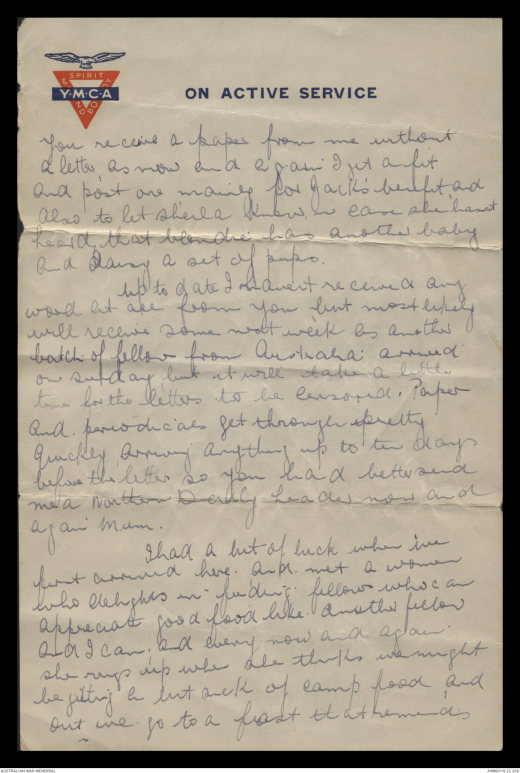 SPIRIT
MIND
BODY
Y·M·C·A
ON ACTIVE SERVICE
you receive a paper from me without
a letter, as now and again I get a fit
and post one mainly for Jack's benefit and
also to let Sheila know, in case she hasnt
heard, that blondie has another baby
and Daisy a set of pups.
Up to date I havent received any
word at all from you but most likely
will receive some next week as another
batch of fellows from Australia arrived
on Sunday, but it will take a little
time for the letters to be censored. Paper
and periodicals get through pretty
quickly arriving anything up to ten days
before the letter so you had better send
me a Northern Daily Leader now and
again Mum.
I had a bit of luck when we
first arrived here. And met a woman
who delights in feeding fellows who can
appreciate good food like another fellow
and I can. And every now and again
she rings up when she thinks we might
be getting a bit sick of camp food and
out we go to a feast that reminds
AUSTRALIAN WAR MEMORIAL